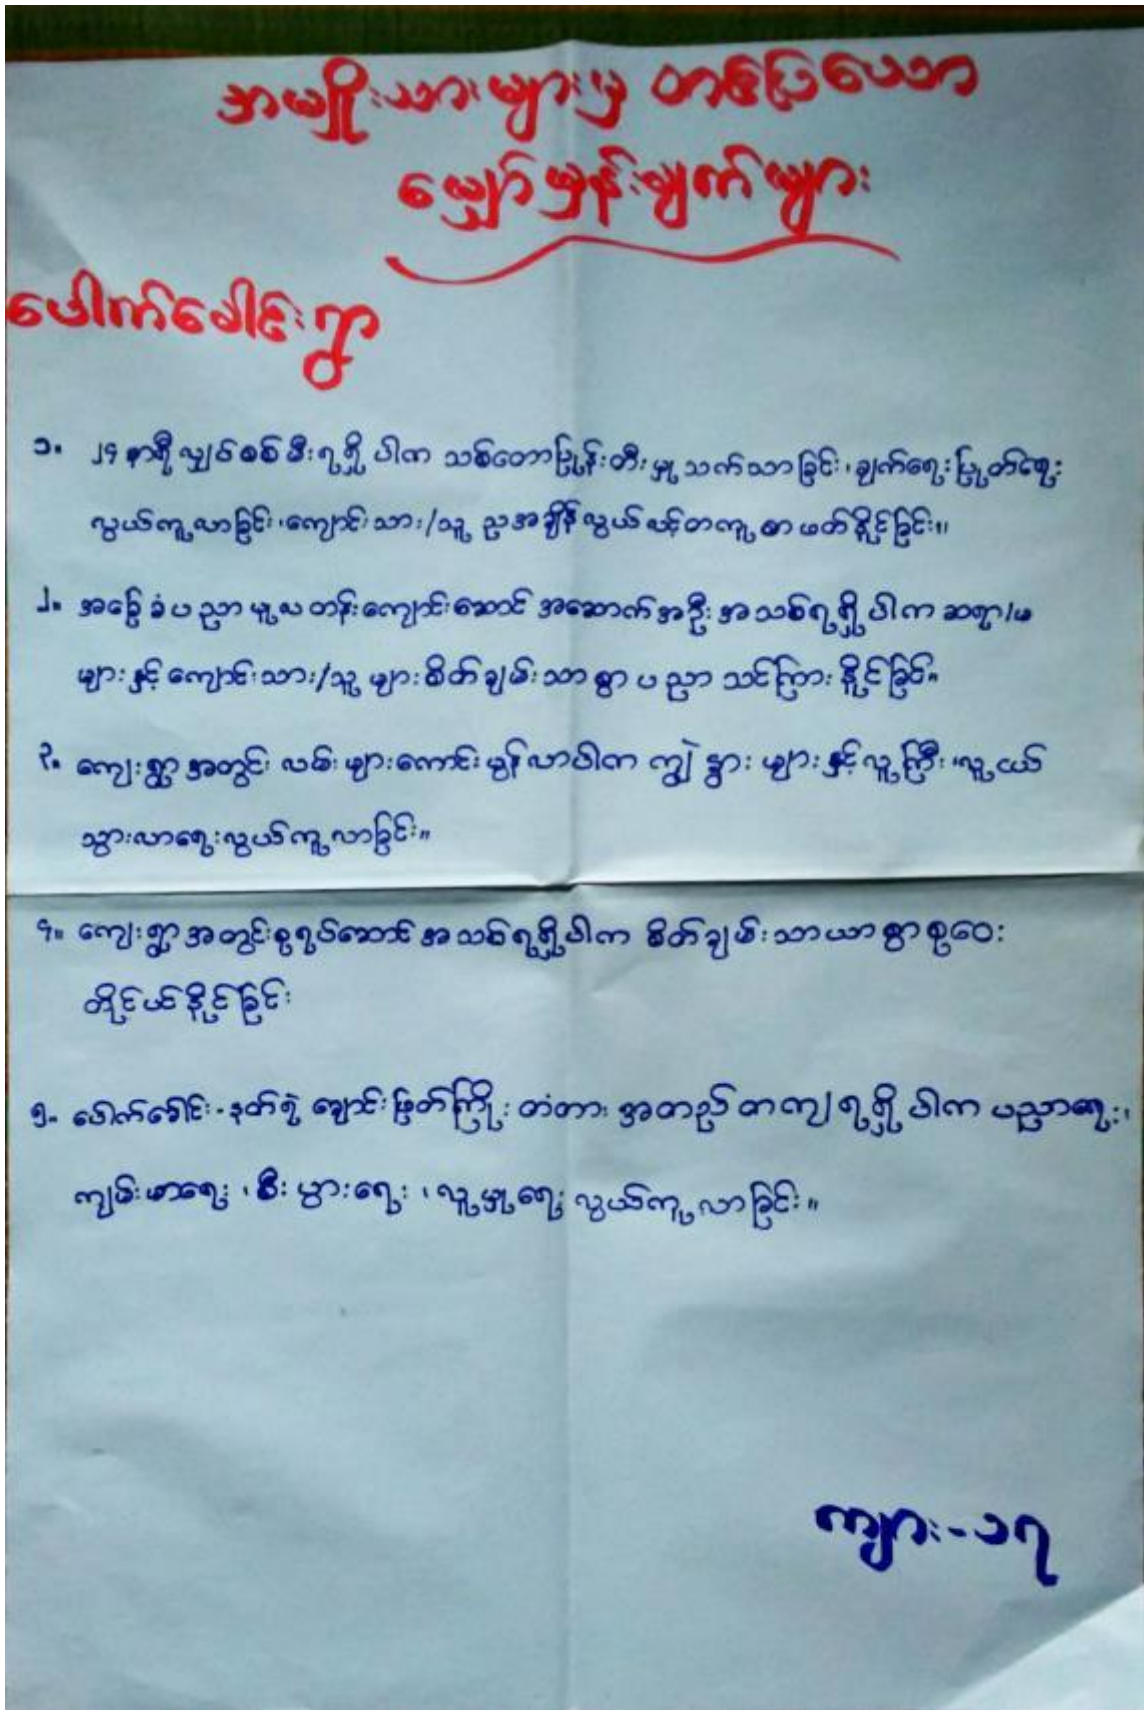 အမျိုးသားများမှ တင်ပြသော
မျှော်မှန်းချက်များ
ပေါက်ခေါင်းရွာ
၁။ ၂၄ နာရီလျှပ်စစ်မီးရရှိပါက သစ်တောပြုန်းတီးမှု သက်သာခြင်း၊ ချက်ရေးပြုတ်ရေး
လွယ်ကူလာခြင်း၊ ကျောင်းသား/သူ ညအချိန်လွယ်လင့်တကူ စာဖတ်နိုင်ခြင်း။
၂။ အခြေခံပညာမူလတန်းကျောင်းဆောင် အဆောက်အဦးအသစ်ရရှိပါက ဆရာ/မ
များနှင့် ကျောင်းသား/သူများစိတ်ချမ်းသာစွာ ပညာသင်ကြားနိုင်ခြင်း။
၃။ ကျေးရွာအတွင်း လမ်းများကောင်းမွန်လာပါက ကျွဲနွားများနှင့် လူကြီး၊ လူငယ်
သွားလာရေးလွယ်ကူလာခြင်း။
၄။ ကျေးရွာအတွင်းစုရပ်ဆောင်အသစ်ရရှိပါက စိတ်ချမ်းသာယာစွာစုဝေး
တိုင်ပင်နိုင်ခြင်း
၅။ ပေါက်ခေါင်း-နတ်ရဲ ချောင်းဖြတ်ကြိုးတံတား အတည်တကျရရှိပါက ပညာရေး၊
ကျမ်းမာရေး၊ စီးပွားရေး၊ လူမှုရေး လွယ်ကူလာခြင်း။
ကျား-၁၇